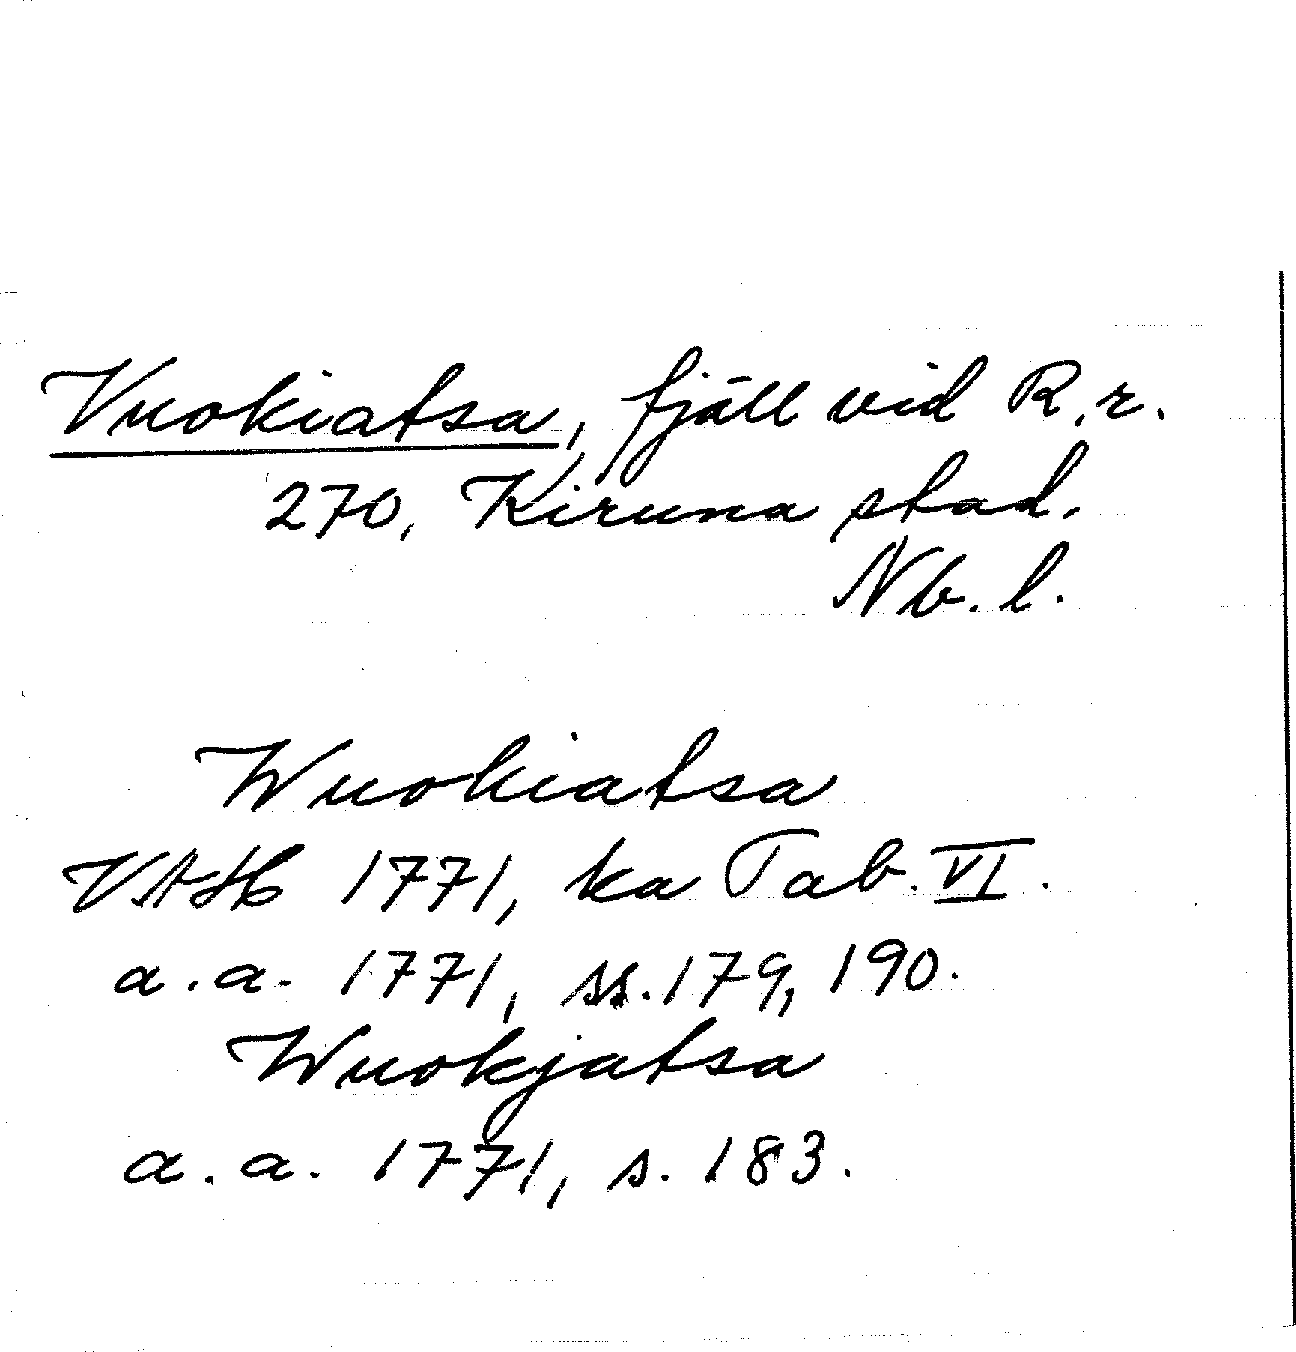 Vuokiatsa, fjäll vid R.r.
270, Kiruna stad.
Nb. l.
Wuokiatsa
VAH 1771, ka Tab. VI.
a.a. 1771, ss. 179, 190.
Wuokjatsa
a.a. 1771, s. 183.